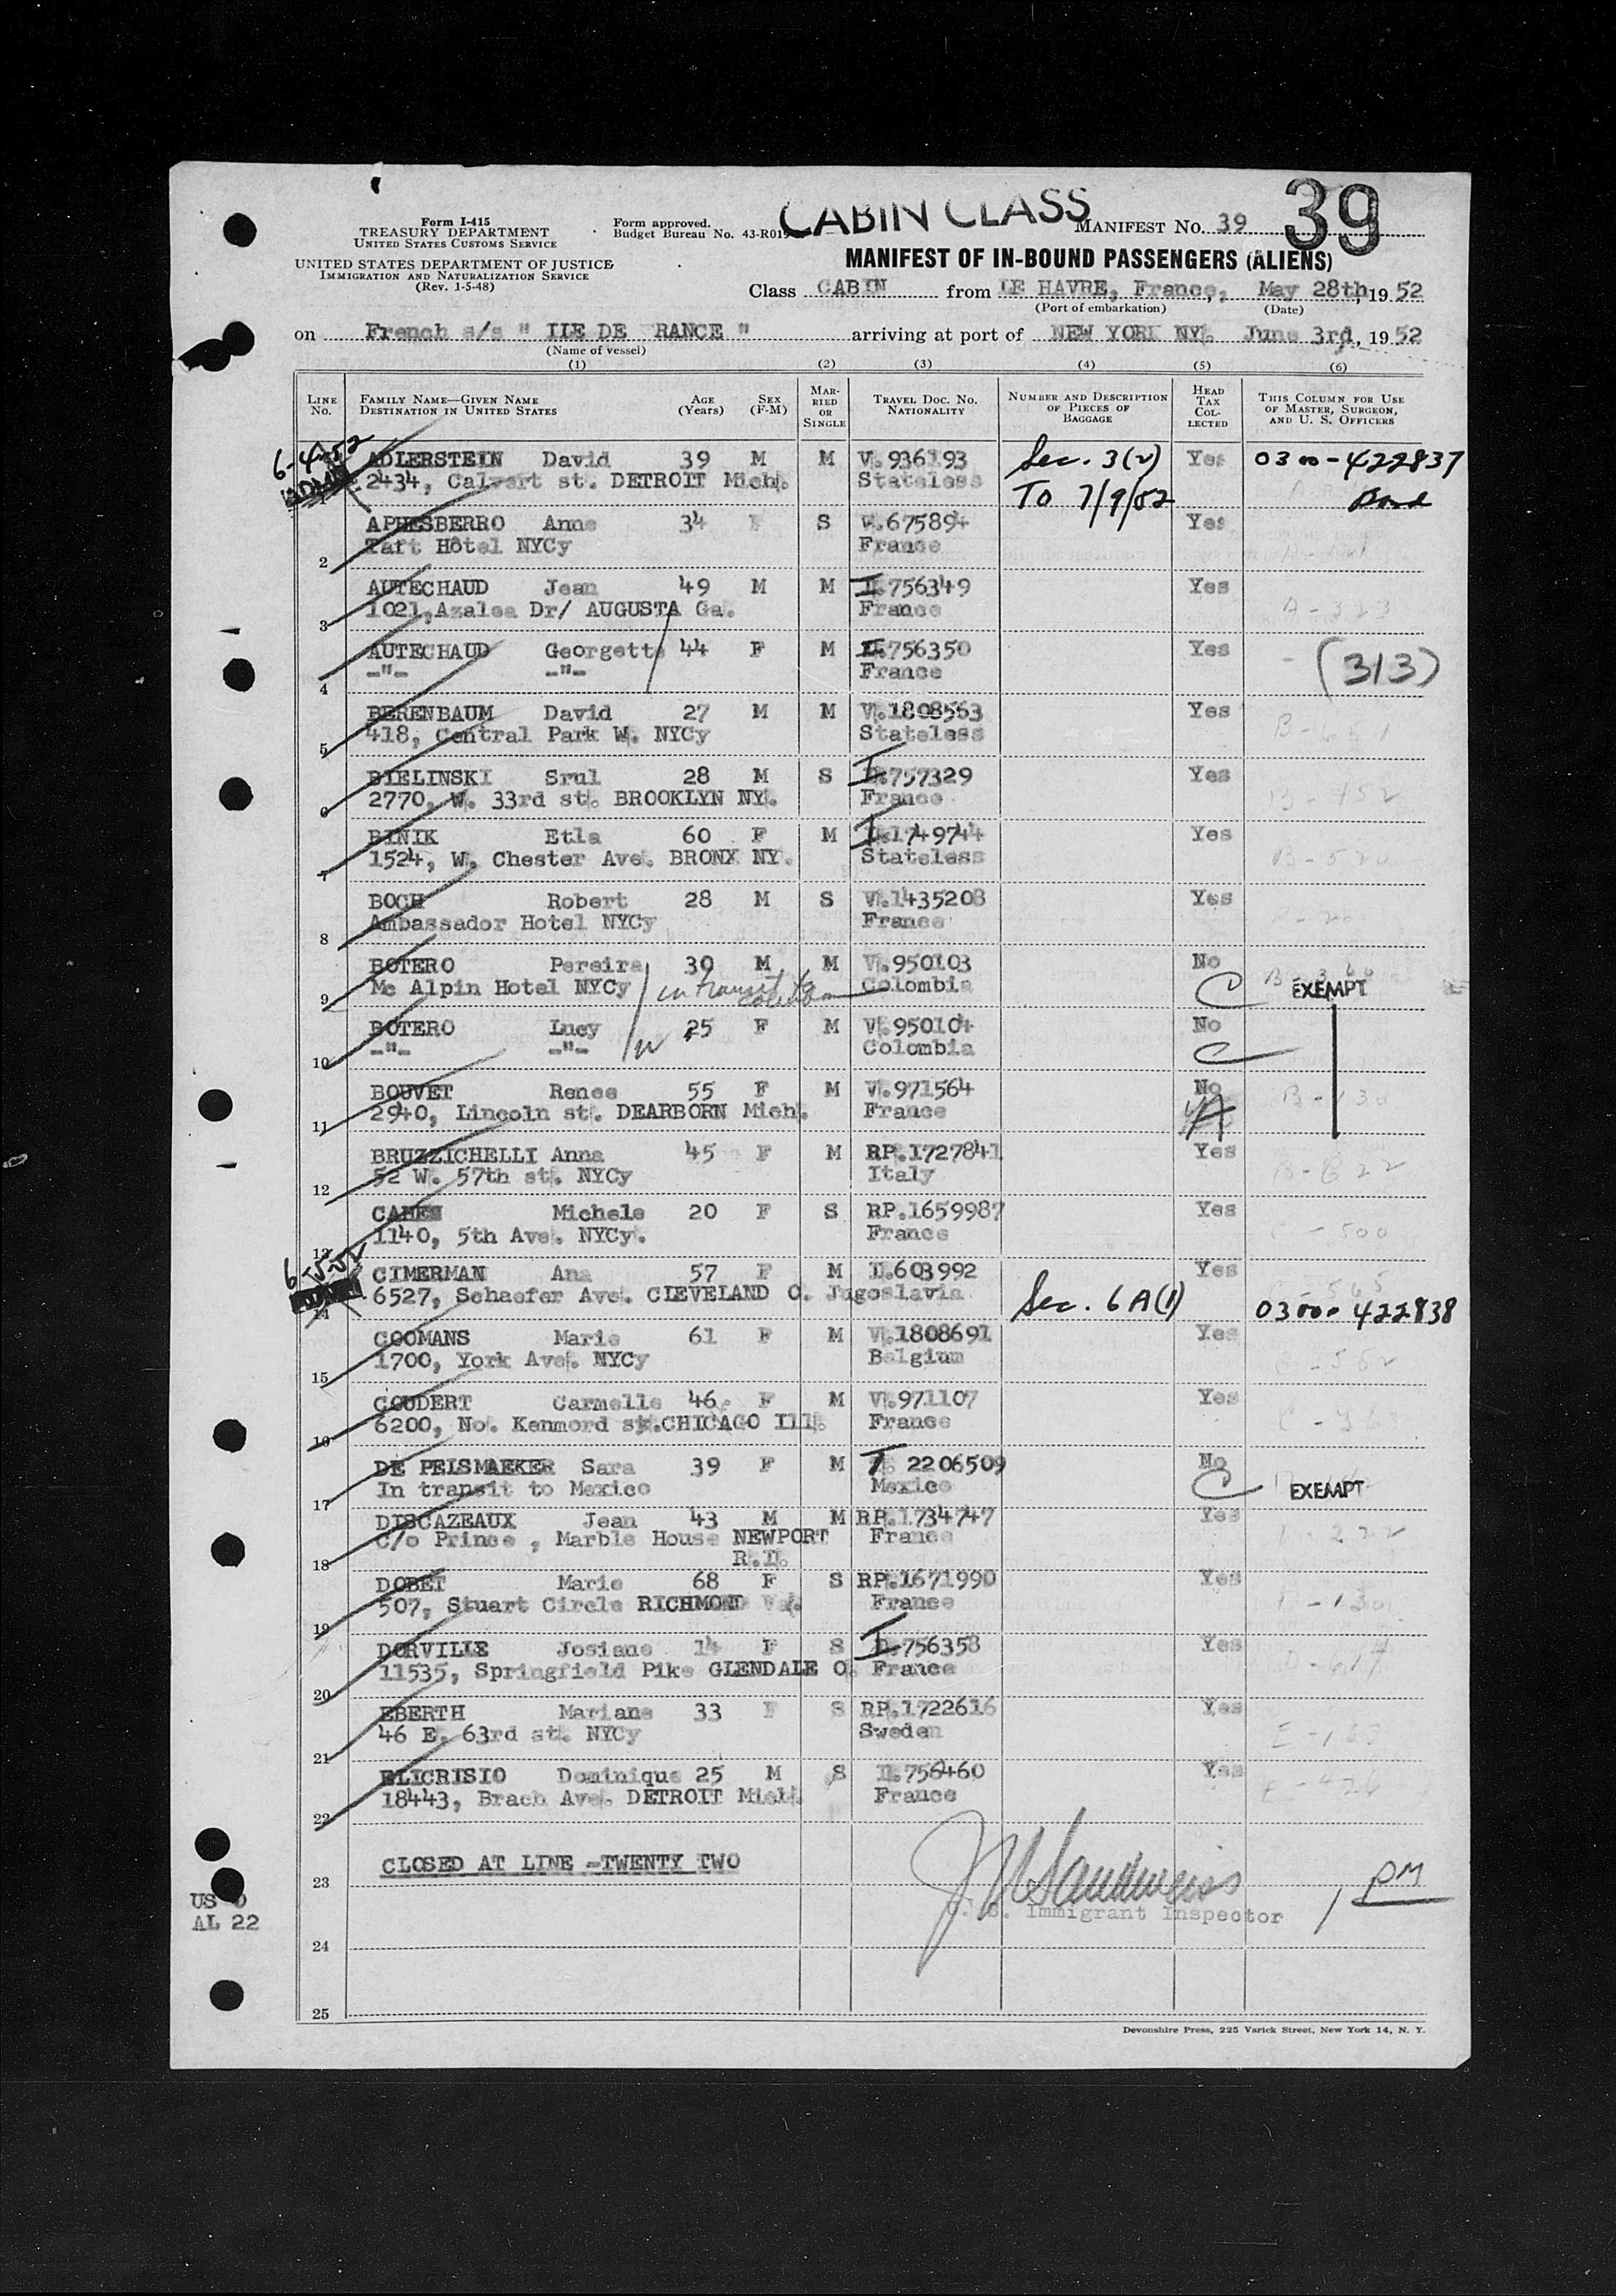 CABIN CLASS
39
Form I-415
TREASURY DEPARTMENT
UNITED STATES CUSTOMS SERVICE
UNITED STATES DEPARTMENT OF JUSTICE
IMMIGRATION AND NATURALIZATION SERVICE
(Rev. 1-5-48)
Form approved.
Budget Bureau No. 43-R019
MANIFEST No. 39
MANIFEST OF IN-BOUND PASSENGERS (ALIENS)
Class CABIN from LE HAVRE, France, May 28th, 1952
(Port of embarkation) (Date)
on French s/s " ILE DE RANCE " arriving at port of NEW YORK NY. June 3rd, 1952
(Name of vessel)
(1) (2) (3) (4) (5) (6)
LINE No. FAMILY NAME—GIVEN NAME DESTINATION IN UNITED STATES AGE (Years) SEX (F-M) MARRIED OR SINGLE TRAVEL DOC. NO. NATIONALITY NUMBER AND DESCRIPTION OF PIECES OF BAGGAGE HEAD TAX COLLECTED THIS COLUMN FOR USE OF MASTER, SURGEON, AND U. S. OFFICERS
6-4-52 ADLERSTEIN David 39 M M V. 936193 Sec. 3(2) Yes 0300-422837
1 2434, Calvert st. DETROIT Mich. Stateless TO 7/9/52 Bond
APHESBERRO Anne 34 F S V.675894 Yes
2 Taft Hôtel NYCy France
AUTECHAUD Jean 49 M M I.756349 Yes
3 1021,Azalea Dr/ AUGUSTA Ga. France A-323
AUTECHAUD Georgette 44 F M I.756350 Yes
4 -"- -"- France (313)
BERENBAUM David 27 M M V.1808563 Yes
5 418, Central Park W. NYCy Stateless
BIELINSKI Srul 28 M S I.757329 Yes
6 2770, W. 33rd st. BROOKLYN NY. France B-452
BINIK Etla 60 F M I.1749744 Yes
7 1524, W. Chester Ave. BRONX NY. Stateless B-520
BOCH Robert 28 M S V.1435208 Yes
8 Ambassador Hotel NYCy France
BOTERO Pereira 39 M M V.950103 No
9 Mc Alpin Hotel NYCy in transit to Colombia Colombia C EXEMPT
BOTERO Lucy 25 F M V.950104 No
10 -"- -"- Colombia C
BOUVET Renee 55 F M V.971564 No
11 2940, Lincoln st. DEARBORN Mich. France
BRUZZICHELLI Anna 45 F M RP.1727841 Yes
12 52 W. 57th st. NYCy Italy B-622
CAHEN Michele 20 F S RP.1659987 Yes
13 1140, 5th Ave. NYCy. France
6-5-52 CIMERMAN Ana 57 F M I.603992 Yes
14 6527, Schaefer Ave. CLEVELAND O. Jugoslavia Sec. 6A(1) 0300-422838
COOMANS Marie 61 F M V.1808691 Yes
15 1700, York Ave. NYCy Belgium
COUDERT Carmelle 46 F M V.971107 Yes
16 6200, No. Kenmord st.CHICAGO Ill. France
DE PEISMAEKER Sara 39 F M I. 2206509 No
17 In transit to Mexico Mexico C EXEMPT
DISCAZEAUX Jean 43 M M RP.1734747 Yes
C/o Prince , Marble House NEWPORT France
18 R.I.
DOBET Marie 68 F S RP.1671990 Yes
19 507, Stuart Circle RICHMOND Va. France
DORVILLE Josiane 14 F S I.756358 Yes
20 11535, Springfield Pike GLENDALE O. France
EBERTH Mariane 33 F S RP.1722616 Yes
21 46 E. 63rd st. NYCy Sweden
ELICRISIO Dominique 25 M S I.756460 Yes
22 18443, Brach Ave. DETROIT Mich. France
23 CLOSED AT LINE -TWENTY TWO
Sandweiss
S. Immigrant Inspector
1 PM
US 0
AL 22
24
25
Devonshire Press, 225 Varick Street, New York 14, N. Y.